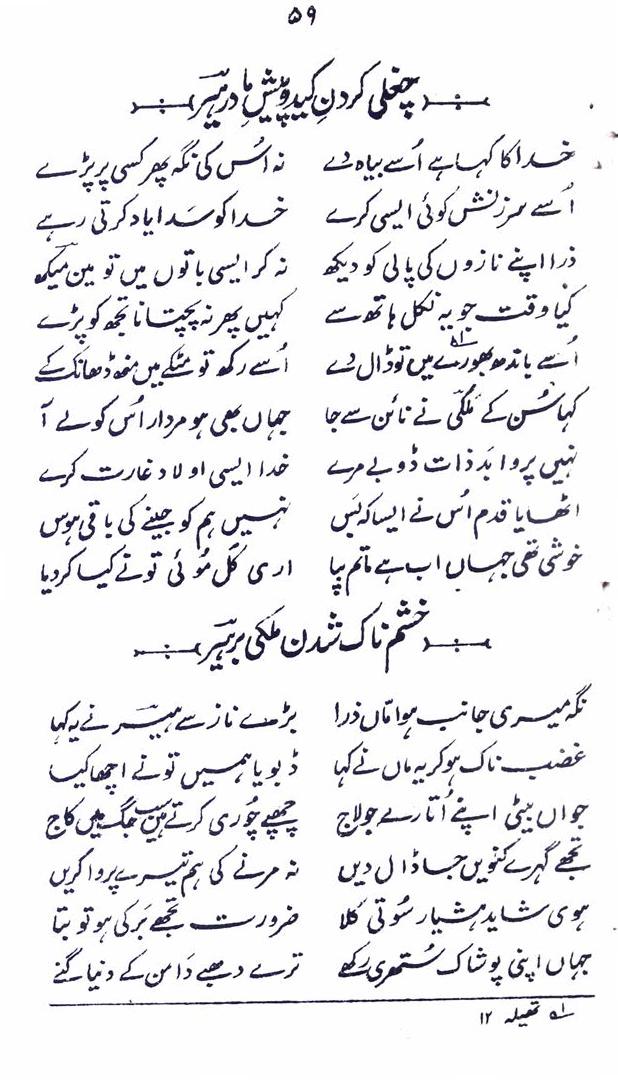 ۵۹
چغلی کردن کیدو پیش مادر ہیر
خدا کا کہا ہے اُسے بیاہ دے نہ اُس کی نگہ پھر کسی پر پڑے
اُسے سرزنش کوئی ایسی کرے خدا کو سَدا یاد کرتی رہے
ذرا اپنے نازوں کی پالی کو دیکھ نہ کر ایسی باتوں میں تو مین میکھ
گیا وقت جو یہ نکل ہاتھ سے کہیں پھر نہ پچتانا تجھ کو پڑے
اُسے باندھ بھورے۱ میں تو ڈال دے اُسے رکھ تو مٹکے میں منھ ڈھانک کے
کہا سُن کے ملکی نے نائن سے جا جہاں بھی ہو مردار اُس کو لے آ
نہیں پروا بدذات ڈوبے مرے خدا ایسی اولاد غارت کرے
اٹھایا قدم اُس نے ایسا کہ بَس نہیں ہم کو جینے کی باقی ہوس
خوشی تھی جہاں اب ہے ماتم بپا اری کَل مُوئی تو نے کیا کر دیا
خشم ناک شدن ملکی بر ہیر
نگہ میری جانب ہو امّاں ذرا بڑے ناز سے ہیر نے یہ کہا
غضب ناک ہو کر یہ ماں نے کہا ڈبویا ہمیں تو نے اچھا کیا
جواں بیٹی اپنے اُتارے جو لاج چھپے چوری کرتے ہیں سب جگ میں کاج
تجھے گہرے کنویں جا ڈال دیں نہ مرنے کی ہم تیرے پروا کریں
ہوی شاید ہشیار سُوتی کلا ضرورت تجھے بَر کی ہو تو بتا
جہاں اپنی پوشاک سُتھری رکھے ترے دھبے دامن کے دنیا گنے
۱؎ تھیلہ ۱۲